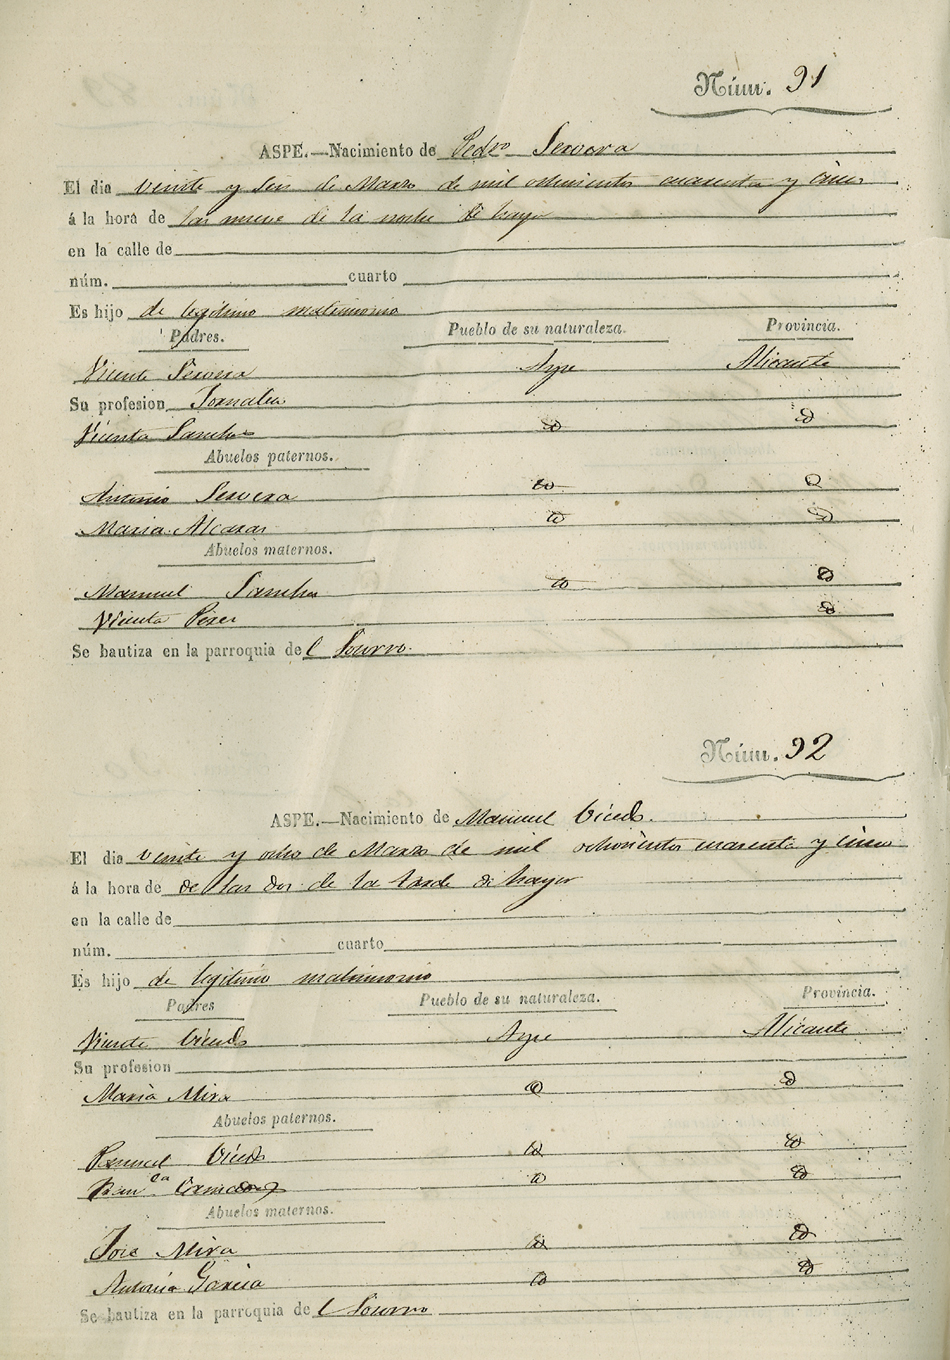 Núm. 91
ASPE.—Nacimiento de Pedro Servera
El dia veinte y seis de Marzo de mil ochocientos cuarenta y cinco
á la hora de las nueve de la noche de hayer
en la calle de
núm. cuarto
Es hijo de legitimo matrimonio
Padres. Pueblo de su naturaleza. Provincia.
Vicente Servera Aspe Alicante
Su profesion Jornalero
Vicenta Sanchez
Abuelos paternos.
Antonio Servera
Maria Alcaraz
Abuelos maternos.
Manuel Sanchez
Vicenta Perez
Se bautiza en la parroquia del Socorro.
Núm. 92
ASPE.—Nacimiento de Manuel Vicedo.
El dia veinte y ocho de Marzo de mil ochocientos cuarenta y cinco
á la hora de de las dos de la tarde de hayer
en la calle de
núm. cuarto
Es hijo de legitimo matrimonio
Padres Pueblo de su naturaleza. Provincia.
Vicente Vicedo Aspe Alicante
Su profesion
Maria Mira
Abuelos paternos.
Vicedo
Abuelos maternos.
José Mira
Antonia Garcia
Se bautiza en la parroquia del Socorro